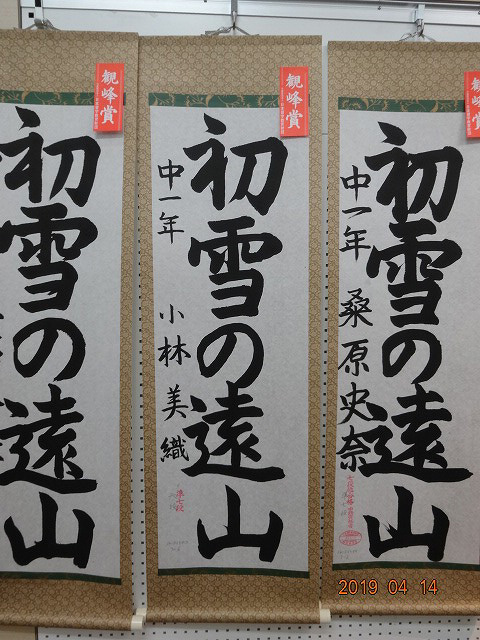 観峰賞
初雪の遠山
中一年 桑原史奈
観峰賞
初雪の遠山
中一年 小林美織
準七段
観峰賞
初雪の遠山
2019 04 14